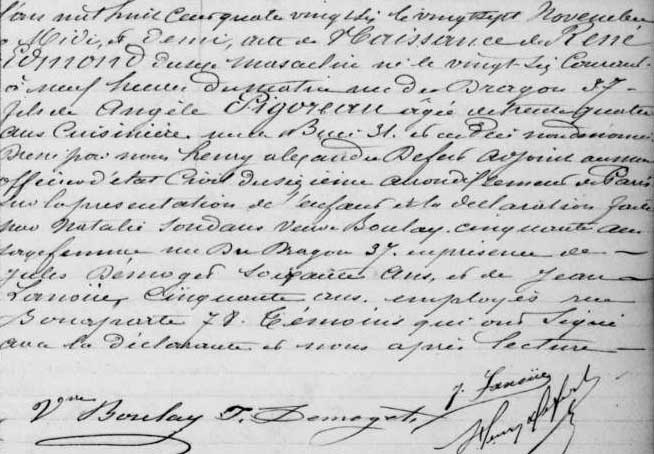 L'an mil huit cent quatre vingt six le vingt sept Novembre
à Midi, et demi, acte de Naissance de René
Edmond du sexe masculin né le vingt six Courant
à neuf heures du matin rue du Dragon 37 -
fils de Angèle Pigoreau âgée de trente quatre
ans Cuisinière, rue de Buci 31. et de Père non dénommé
Dressé par nous Henry Alexandre Defert adjoint au maire
officier d'état Civil du sixième arrondissement de Paris
sur la présentation de l'enfant et la déclaration faite
par Natalie Soudans Veuve Boulay, cinquante ans
sagefemme rue Du Dragon 37. en présence de -
Jules Démoget soixante Ans, et de Jean -
Lanoüe, Cinquante ans. employés rue
Bonaparte 78. témoins qui ont signé
avec la déclarante et nous après lecture -
Vve Boulay J. Demoget J. Lanoüe
Henry Defert